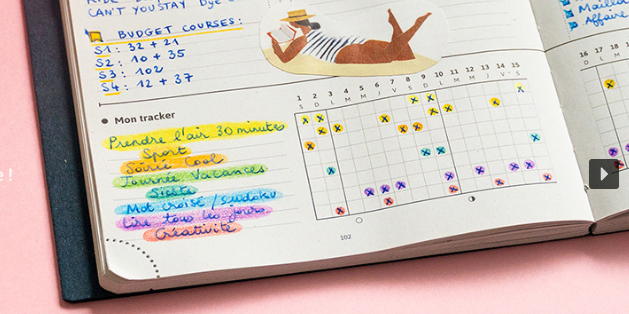 CAN'T YOU STAY Bye
Mailla
Affaire
BUDGET COURSES:
S1: 32 + 21
S2: 10 + 35
S3: 102
S4: 12 + 37
1 2 3 4 5 6 7 8 9 10 11 12 13 14 15
S D L M M J V S D L M M J V S
16 17 18
Mon tracker
Prendre l'air 30 minutes
Sport
Soirée Cool
Journée Vacances
Sieste
Mot croisé / sudoku
Lire tous les jours
Créativité
102
e!